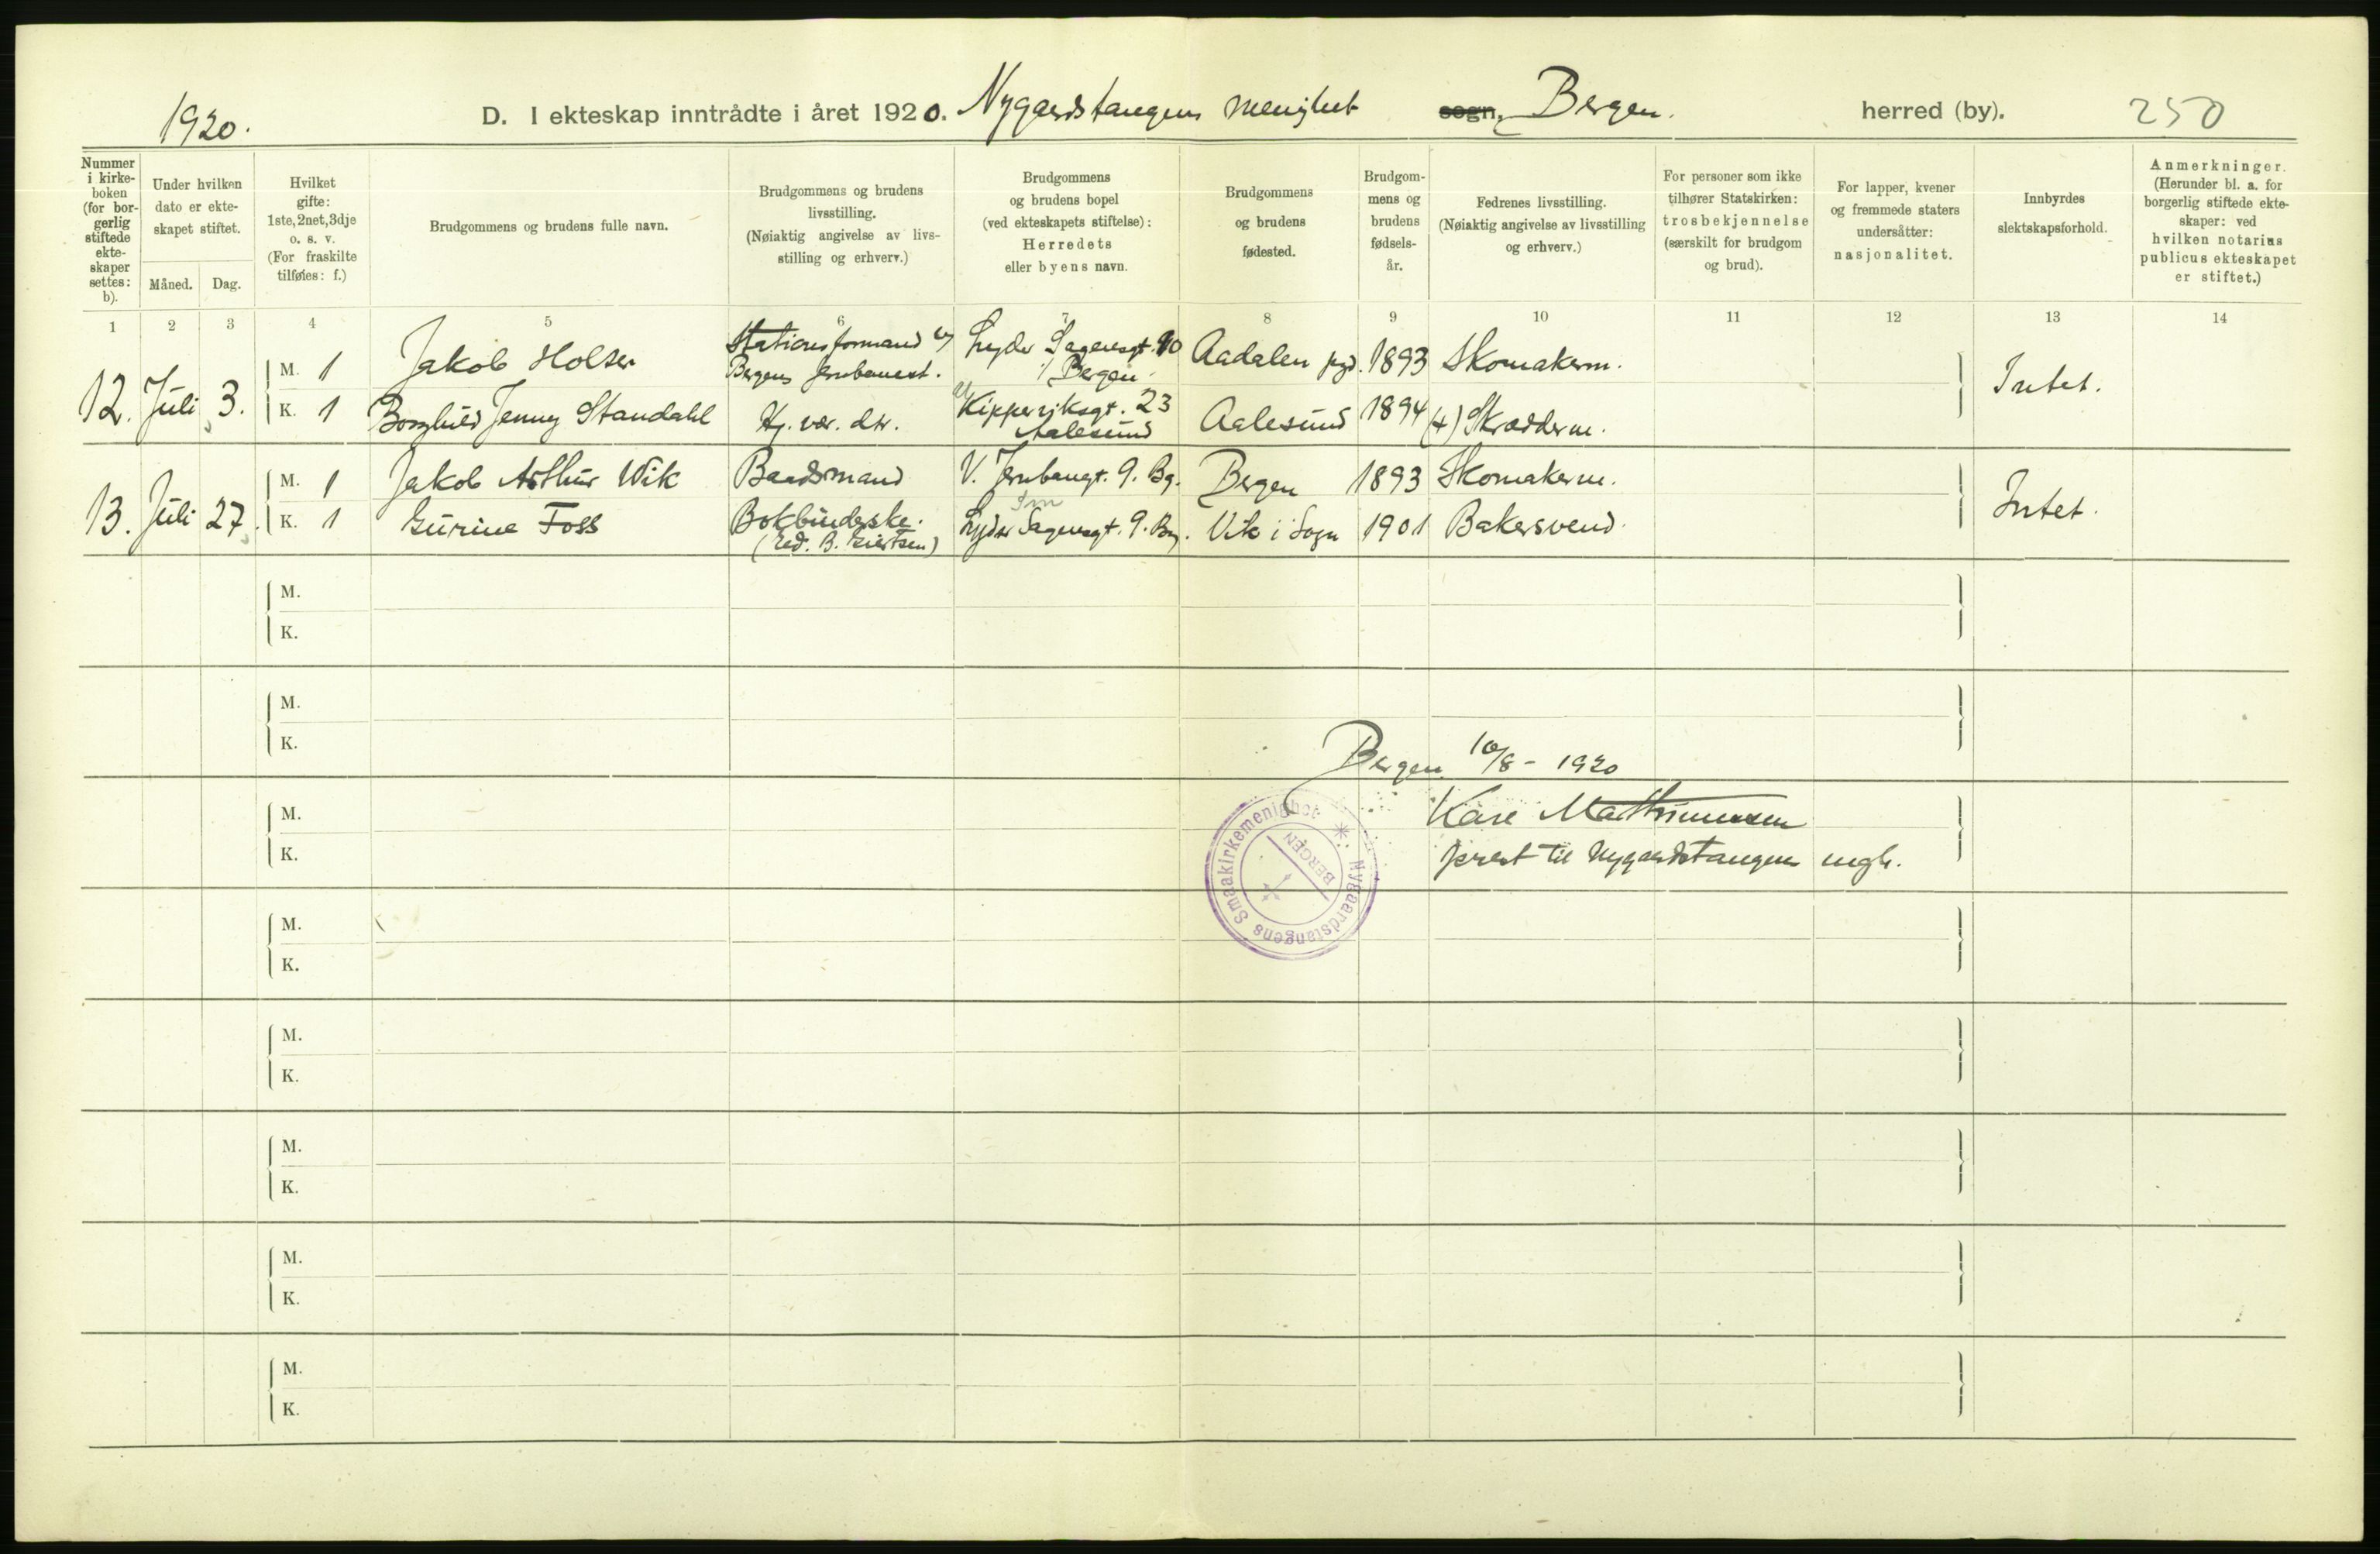 1920.
D. I ekteskap inntrådte i året 1920. Nygaardstangens menighet sogn, Bergen. herred (by). 250
Nummer i kirke- boken (for bor- gerlig stiftede ekte- skaper settes: b).
Under hvilken dato er ekte- skapet stiftet.
Måned. Dag.
Hvilket gifte: 1ste, 2net, 3dje o. s. v. (For fraskilte tilføies: f.)
Brudgommens og brudens fulle navn.
Brudgommens og brudens livsstilling. (Nøiaktig angivelse av livs- stilling og erhverv.)
Brudgommens og brudens bopel (ved ekteskapets stiftelse): Herredets eller byens navn.
Brudgommens og brudens fødested.
Brudgom- mens og brudens fødsels- år.
Fedrenes livsstilling. (Nøiaktig angivelse av livsstilling og erhverv.)
For personer som ikke tilhører Statskirken: trosbekjennelse (særskilt for brudgom og brud).
For lapper, kvener og fremmede staters undersåtter: nasjonalitet.
Innbyrdes slektskapsforhold.
Anmerkninger. (Herunder bl. a. for borgerlig stiftede ekte- skaper: ved hvilken notarius publicus ekteskapet er stiftet.)
1 2 3 4 5 6 7 8 9 10 11 12 13 14
12. Juli 3. M. 1 Jakob Holter Stationsformand v/ Bergens Jernbanest. Lyder Sagensgt. 10 Bergen Aadalen pgd. 1893 Skomakerm. Intet.
K. 1 Borghild Jenny Standahl Hj. vær. dtr. Kipperviksgt. 23 Aalesund Aalesund 1894 (+) Skrædderm.
13. Juli 27. M. 1 Jakob Arthur Wik Baadsmand V. Jernbangt. 9. Bg. Bergen 1893 Skomakerm. Intet.
K. 1 Gurine Foss Bokbinderske. (Ved. B. Giertsen) Lyder Sagensgt. 9. Bg. Vik i Sogn 1901 Bakersvend.
M.
K.
M.
K.
Bergen 10/8 - 1920
M. Kåre Mathiunessen
K. prest til Nygaardstangens mgh.
Nygaardstangens Smaakirkemenighet BERGEN
M.
K.
M.
K.
M.
K.
M.
K.
M.
K.